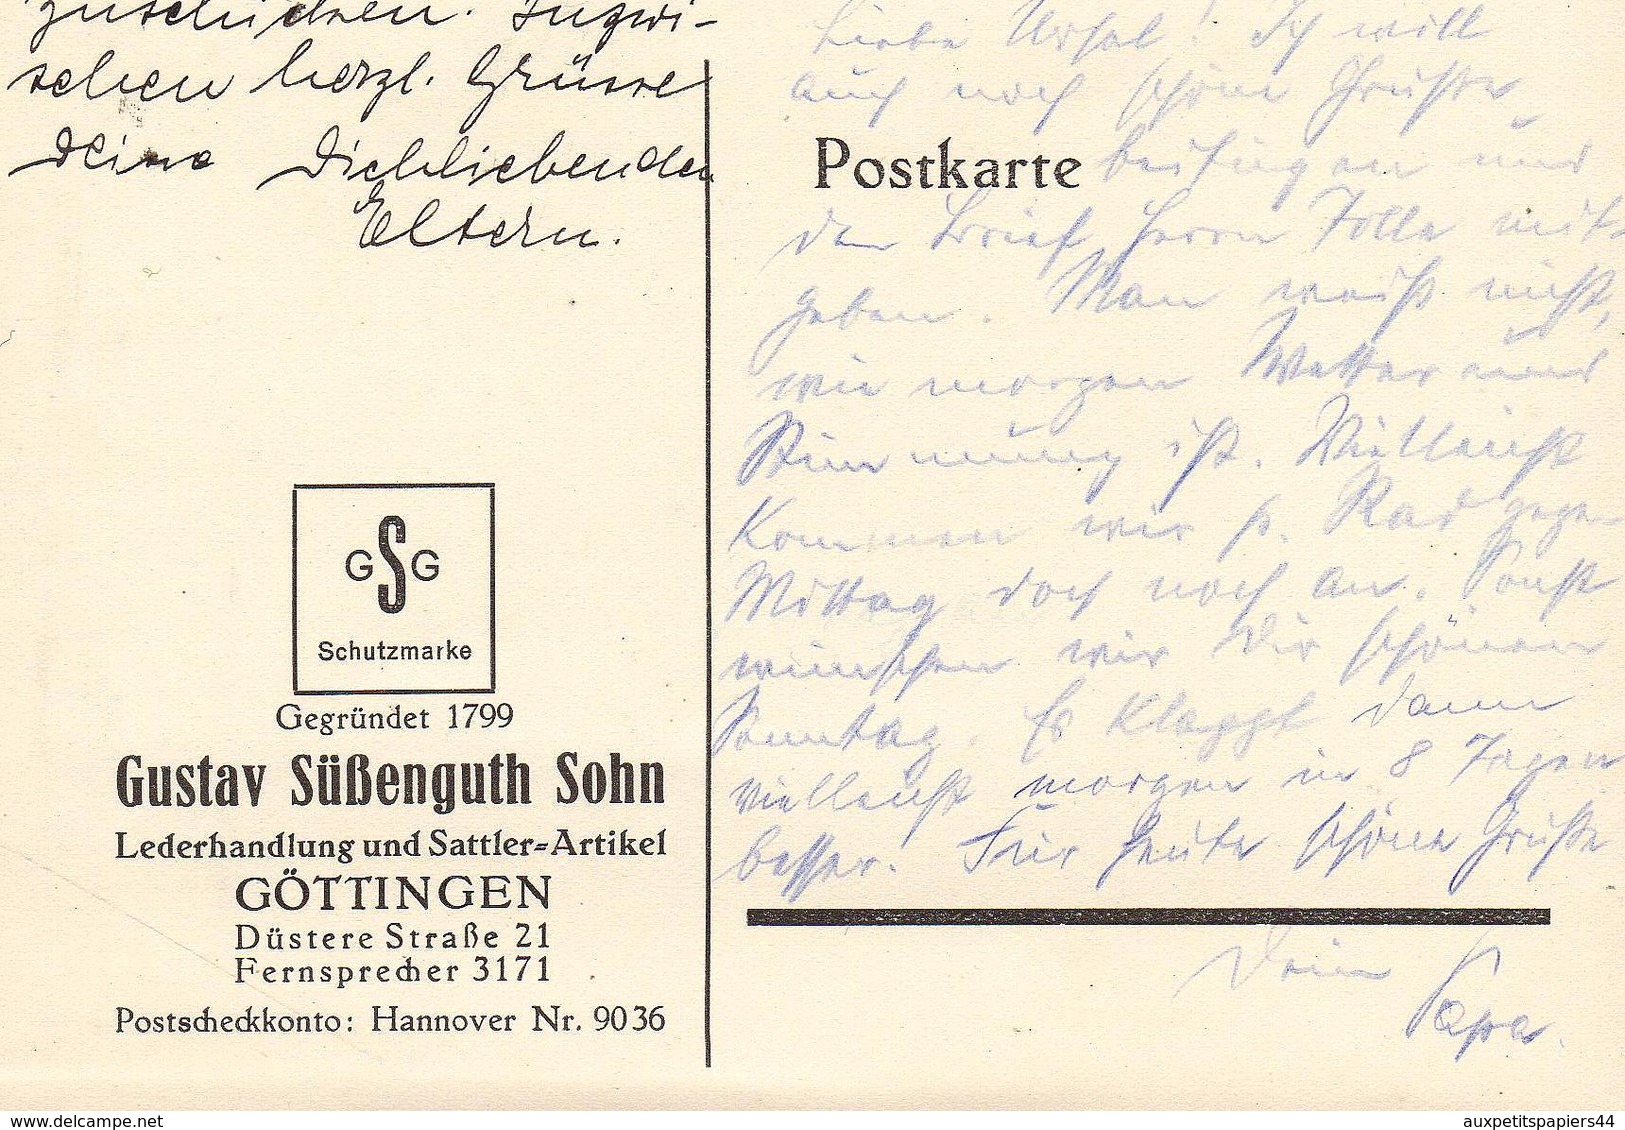 zuschicken. Inzwi-
schen herzl. Grüsse
Deine Dichliebenden
Eltern.
GSG
Schutzmarke
Gegründet 1799
Gustav Süßenguth Sohn
Lederhandlung und Sattler-Artikel
GÖTTINGEN
Düstere Straße 21
Fernsprecher 3171
Postscheckkonto: Hannover Nr. 9036
Liebe Ursel! Ich will
auch noch schöne Grüße
Postkarte
beifügen und
den Brief Herrn Tolle mit-
geben. Man weiß nicht,
wie morgen Wetter und
Stimmung ist. Vielleicht
kommen wir p. Rad gegen
Mittag doch noch an. Sonst
wünschen wir Dir schönen
Sonntag. Es klappt dann
vielleicht morgen in 8 Tagen
besser. Für heute schöne Grüße
Dein
Papa.
delcampe.net
auxpetitspapiers44